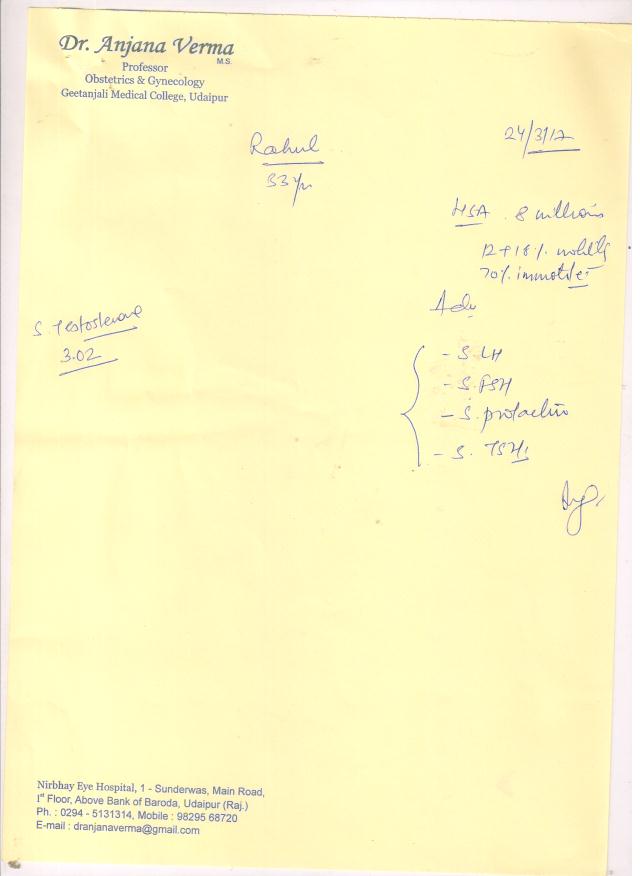 Dr. Anjana Verma
M.S.
Professor
Obstetrics & Gynecology
Geetanjali Medical College, Udaipur
24/3/17
Rahul
33 yr
HSA 8 millions
12+18% motility
70% immotile
Adv
S. Testosterone
3.02
- S. LH
- S. FSH
- S. prolactin
- S. TSH
Nirbhay Eye Hospital, 1 - Sunderwas, Main Road,
Ist Floor, Above Bank of Baroda, Udaipur (Raj.)
Ph. : 0294 - 5131314, Mobile : 98295 68720
E-mail : dranjanaverma@gmail.com